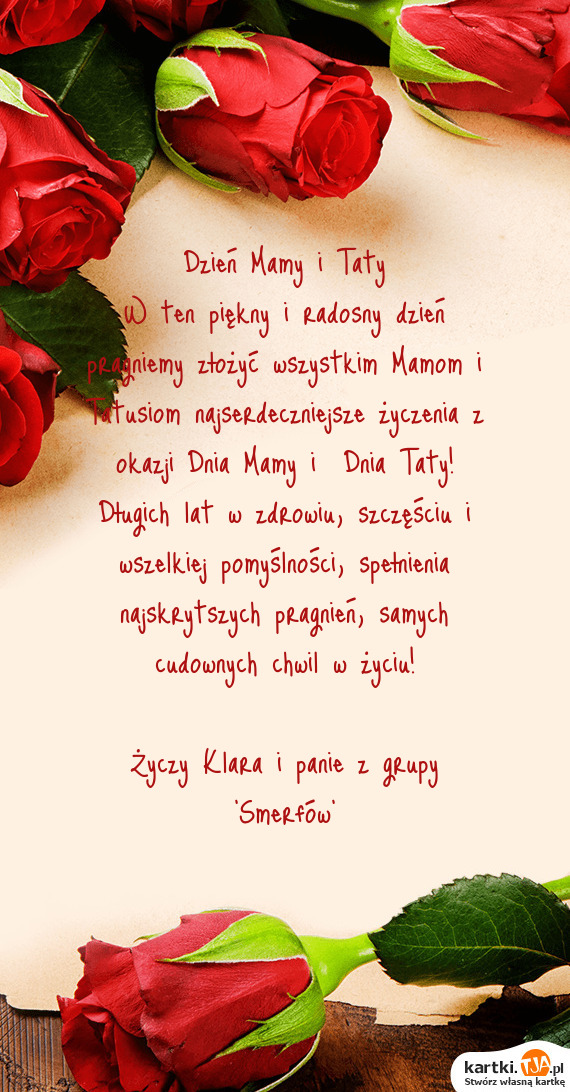 Dzień Mamy i Taty
W ten piękny i radosny dzień
pragniemy złożyć wszystkim Mamom i
Tatusiom najserdeczniejsze życzenia z
okazji Dnia Mamy i  Dnia Taty!
Długich lat w zdrowiu, szczęściu i
wszelkiej pomyślności, spełnienia
najskrytszych pragnień, samych
cudownych chwil w życiu!

Życzy Klara i panie z grupy
"Smerfów"
kartki.TJA.pl
Stwórz własną kartkę